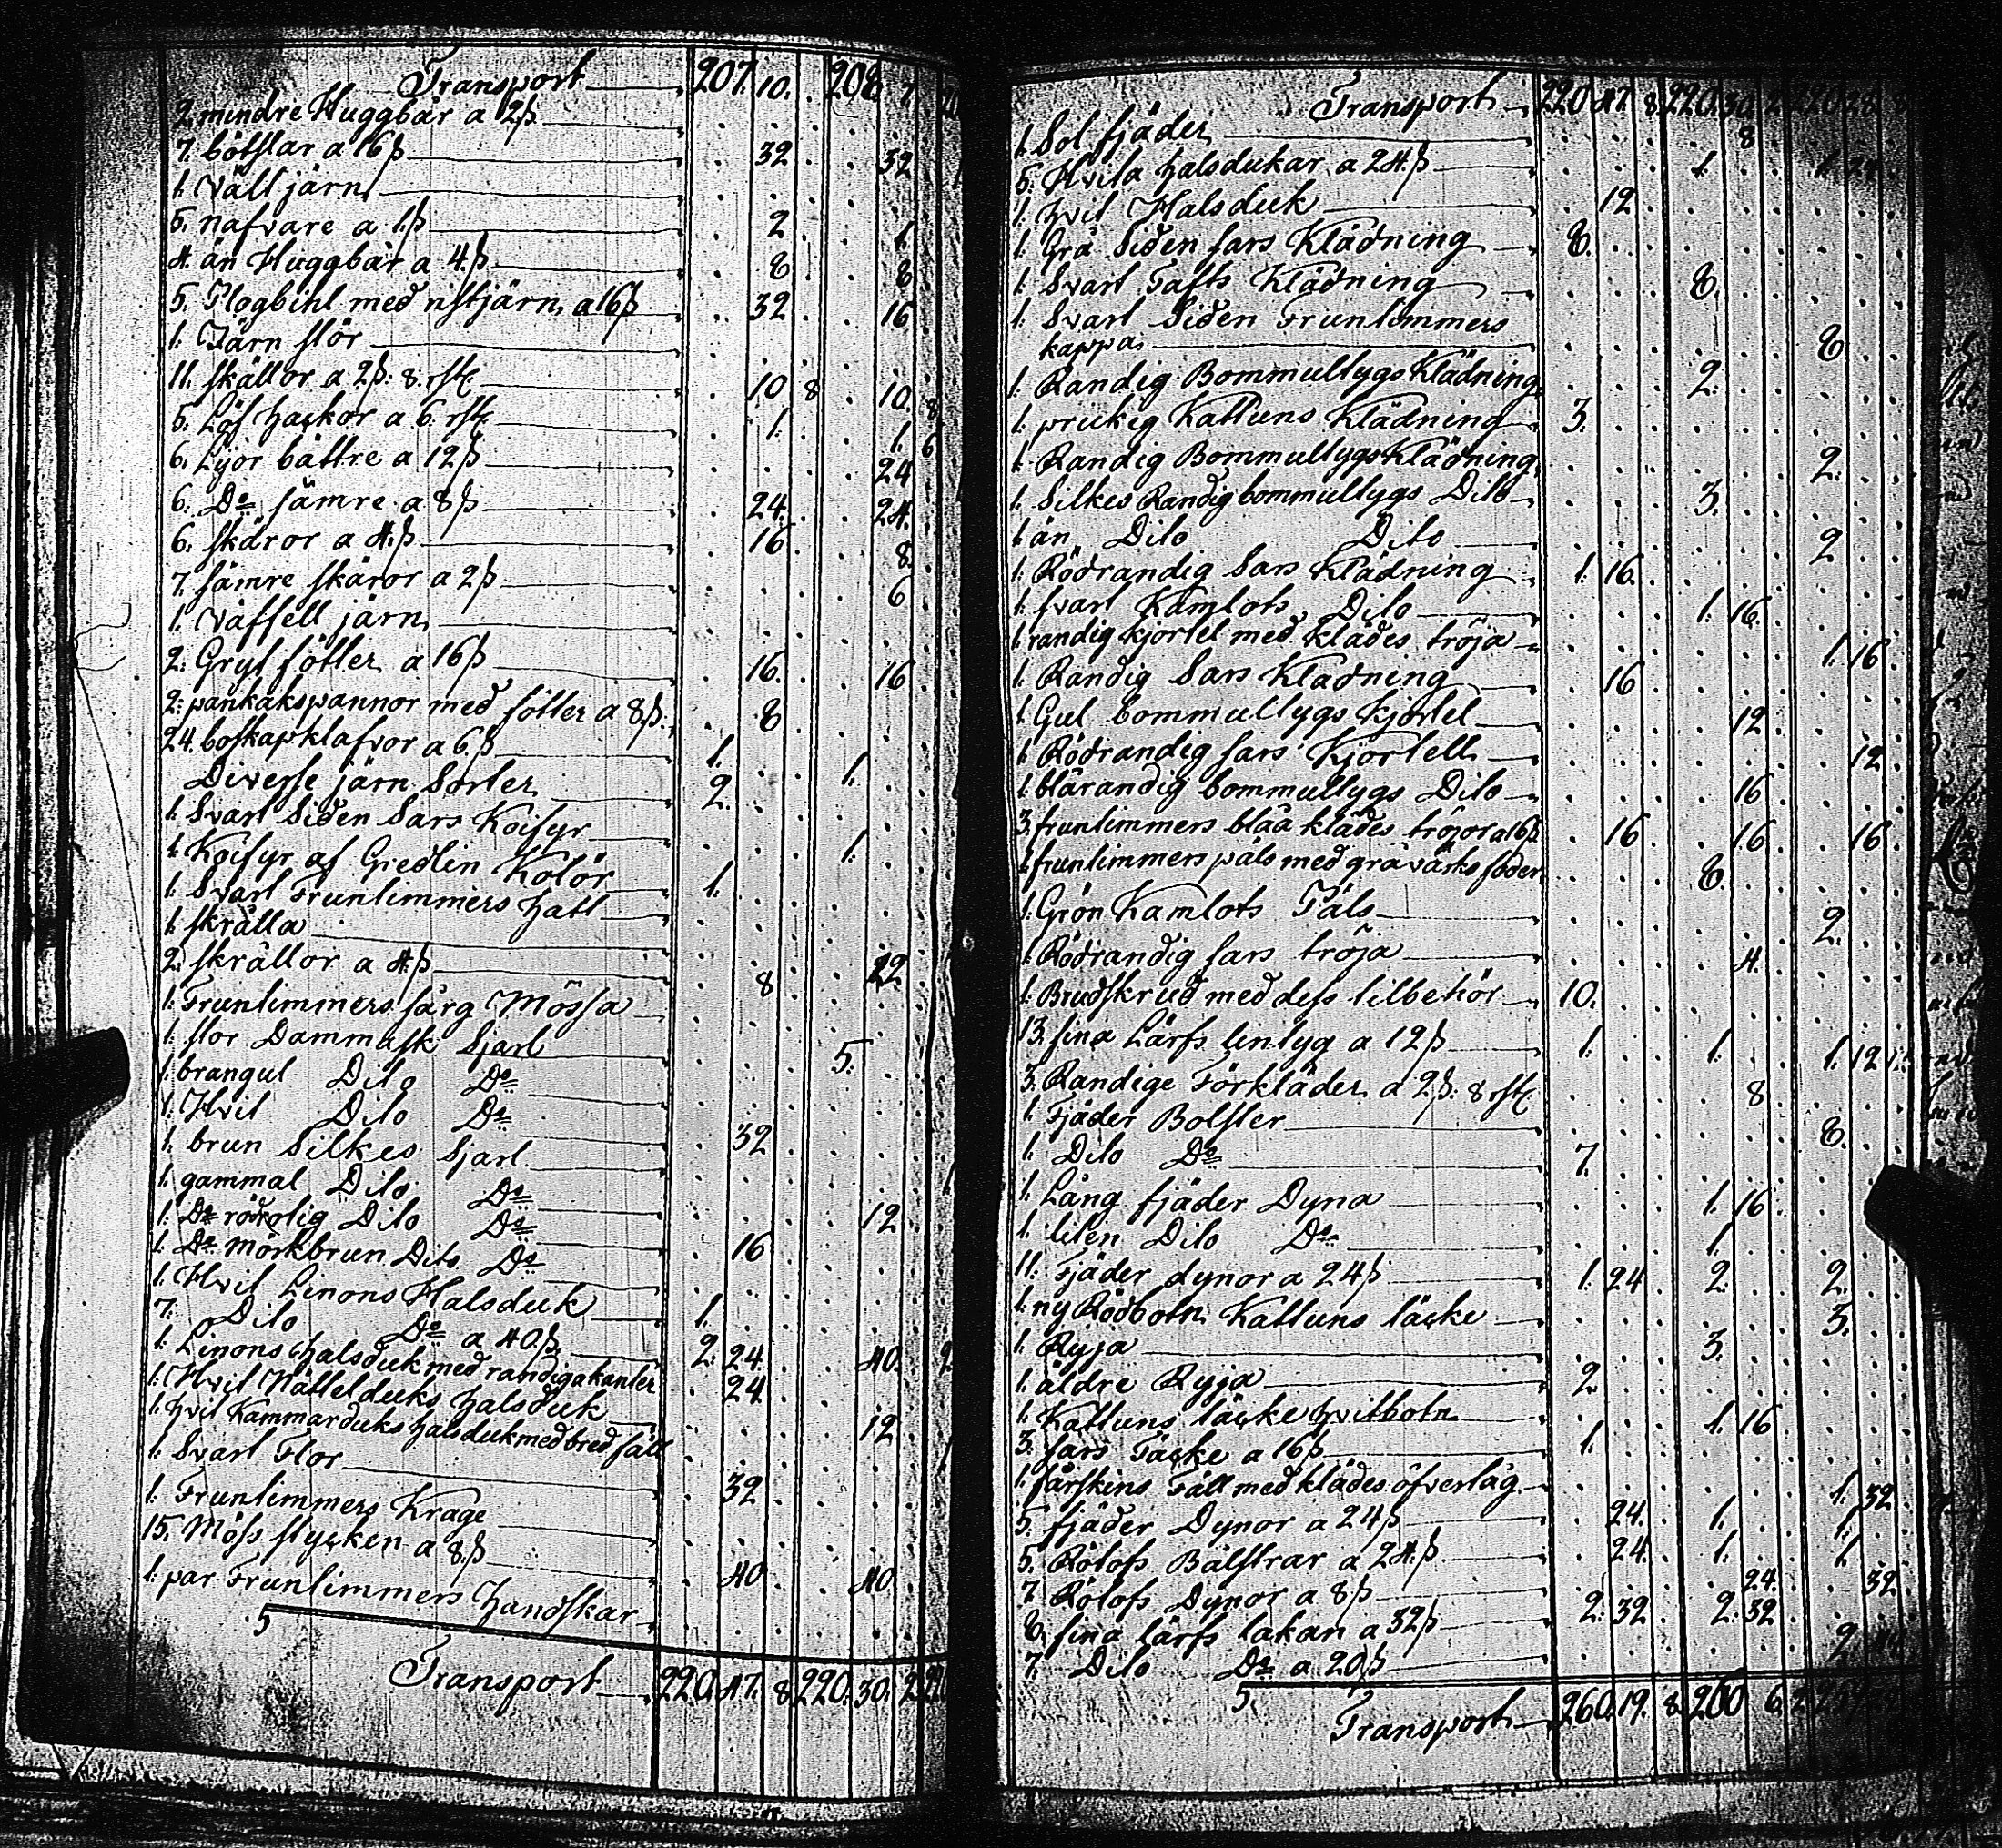 Transport 207. 10. 208 7.
2. mindre Huggbär a 12ß
7. bötslar a 16ß 32 32
1. Väll järn
5. nafvare a 1.ß 2 1.
4. än Huggbär a 4.ß 8 8
5. Plogbihl med ristjärn, a 16ß 32 16
1. Järn stör
11. skällor a 2ß: 8. rst. 10 8 10. 8
5. Löf hackor a 6. rst. 1. 1. 6
6. Lijor bättre a 12ß 24
6. Do sämre a 8ß 24. 24.
6. skäror a 4.ß 16 8.
7. sämre skäror a 2ß 6
1. Väffell järn
2. Gryt fötter a 16ß 16. 16
2. pankakspannor med fötter a 8ß. 8
24. boskapklafvor a 6.ß 1. 1.
Diverse järn Sorter 2.
1. Svart Siden Sars Koisyr
1. Koisyr af Gredlin Kolör 1.
1. Svart Fruntimmers hatt 1.
1. skrälla
2. skrällor a 4.ß 8 22.
1. Fruntimmers särg Mössa
1. stor Dammask Sjarl 5.
1. brangul Dito Do
1. Hvit Dito Do
1. brun Silkes Sjarl. 32
1. gammal Dito Do
1. Do rödrolig Dito Do 12
1. Do Mörkbrun Dito Do 16
1. Hvit Linons Halsduk
7. Dito Do a 40.ß 1.
1. Linons halsduk med randiga kanter 2. 24. 40.
1. Hvit Nättelduks halsduk 24
1. hvit Kammarduks halsduk med bred fåll 12
1. Svart Flor
1. Fruntimmers Krage 32
15. Möss stycken a 8.ß
1. par Fruntimmers handskar 40 40
5
Transport 220. 47. 8 220. 30. 2
Transport 220 47. 8 220. 30. 2 220 28 8
1. Sol fjäder 8
5. Hvita halsdukar a 24.ß 1. 1. 24
1. hvit Halsduk 12
1. Grå Siden sars Klädning 8.
1. Svart Tafts Klädning 8.
1. Svart Siden Fruntimmers
kappa 8
1. Randig Bommullygs Klädning 2.
1. prickig Kattuns Klädning 3.
1. Randig Bommullygs Klädning 2.
1. Silkes Randig bommullygs Dito 3.
1. än Dito Dito 2
1. Rödrandig Sars Klädning 1. 16.
1. svart Kamlots Dito 1. 16.
1. randig kjortel med klädes tröja 1. 16
1. Randig Sars Klädning 16
1. Gul bommullygs Kjortel 12
1. Rödrandig sars Kjortell 12
1. blårandig bommullygs Dito 16
3. fruntimmers blåa klädes tröjor a 16ß. 16 16 16
1. fruntimmers päls med gråvärks foder 8.
1. Grön Kamlots Päls 2.
1. Rödrandig sars tröja 4.
1. Brudskrud med dess tilbehör 10.
13. fina Lärfs lintyg a 12ß 1. 1. 1. 12
3. Randige Förkläder a 2ß: 8 rst. 8
1. Fjäder Bolster 8.
1. Dito Do 7.
1. Lång fjäder Dyna 1. 16
1. liten Dito Do 1.
11. Fjäder dynor a 24ß 1. 24 2. 2.
1. ny Rödbotn Kattuns täcke 3.
1. Ryja 3.
1. äldre Ryja 2
1. Kattuns täcke hvitbotn 1. 16
3. sars Täcke a 16ß 1.
1. fårskins Fäll med klädes öfverlag. 1. 32
5. fjäder Dynor a 24ß 24. 1. 1.
5. Rölofs Bålstrar a 24.ß 24. 1. 1.
7. Rölofs Dynor a 8ß 24. 32
8. fina lärfs lakan a 32ß 2. 32 2. 32
7. Dito Do a 20ß 2
5
Transport 260. 19. 8. 260 6. 2